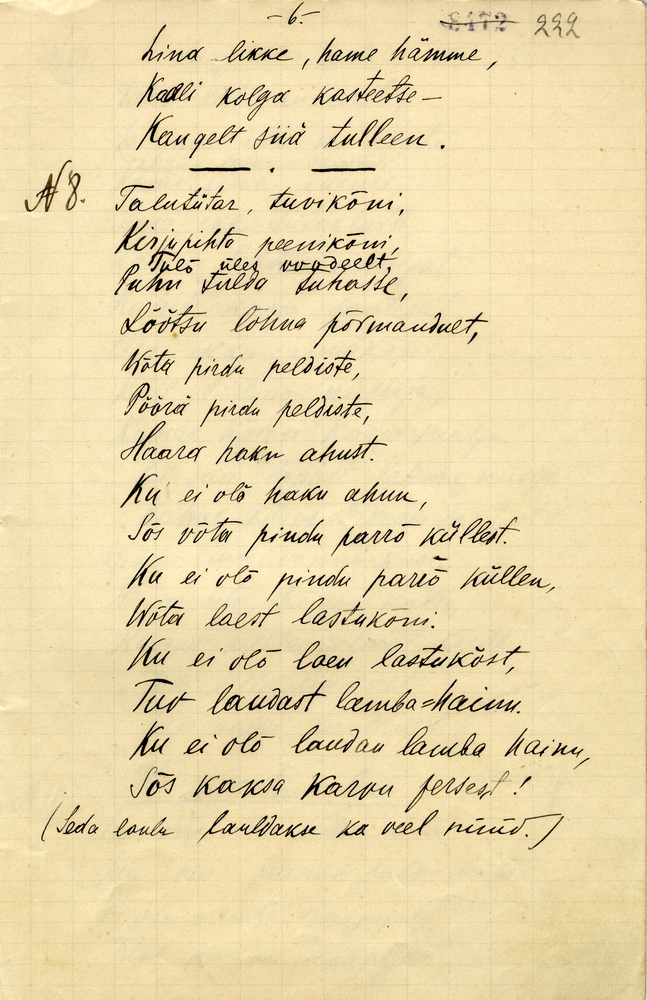 -6-
8472 222
Lina likke, hame hämme,
Kaali kolga kasteetse —
Kangelt siiä tulleen.
N 8. Talutütar, tuvikõni,
Kirjupihta peenikõni,
Tulõ üles voodeelt,
Puhu tulda tuhasse,
Lõõtsu lõhna põrmandult,
Wõta pirdu peldiste,
Pöörä pirdu peldiste,
Haara haku ahust.
Ku ei olõ haku ahun,
Sõs võta pindu parrõ küllest.
Ku ei olõ pindu parrõ küllen,
Wõta laest lastukõni.
Ku ei olõ laen lastukõst,
Tuo laudast lamba=hainu.
Ku ei olõ laudan lamba hainu,
Sõs kaksa karvu persest!
(Seda laulu lauldakse ka veel nüüd.)